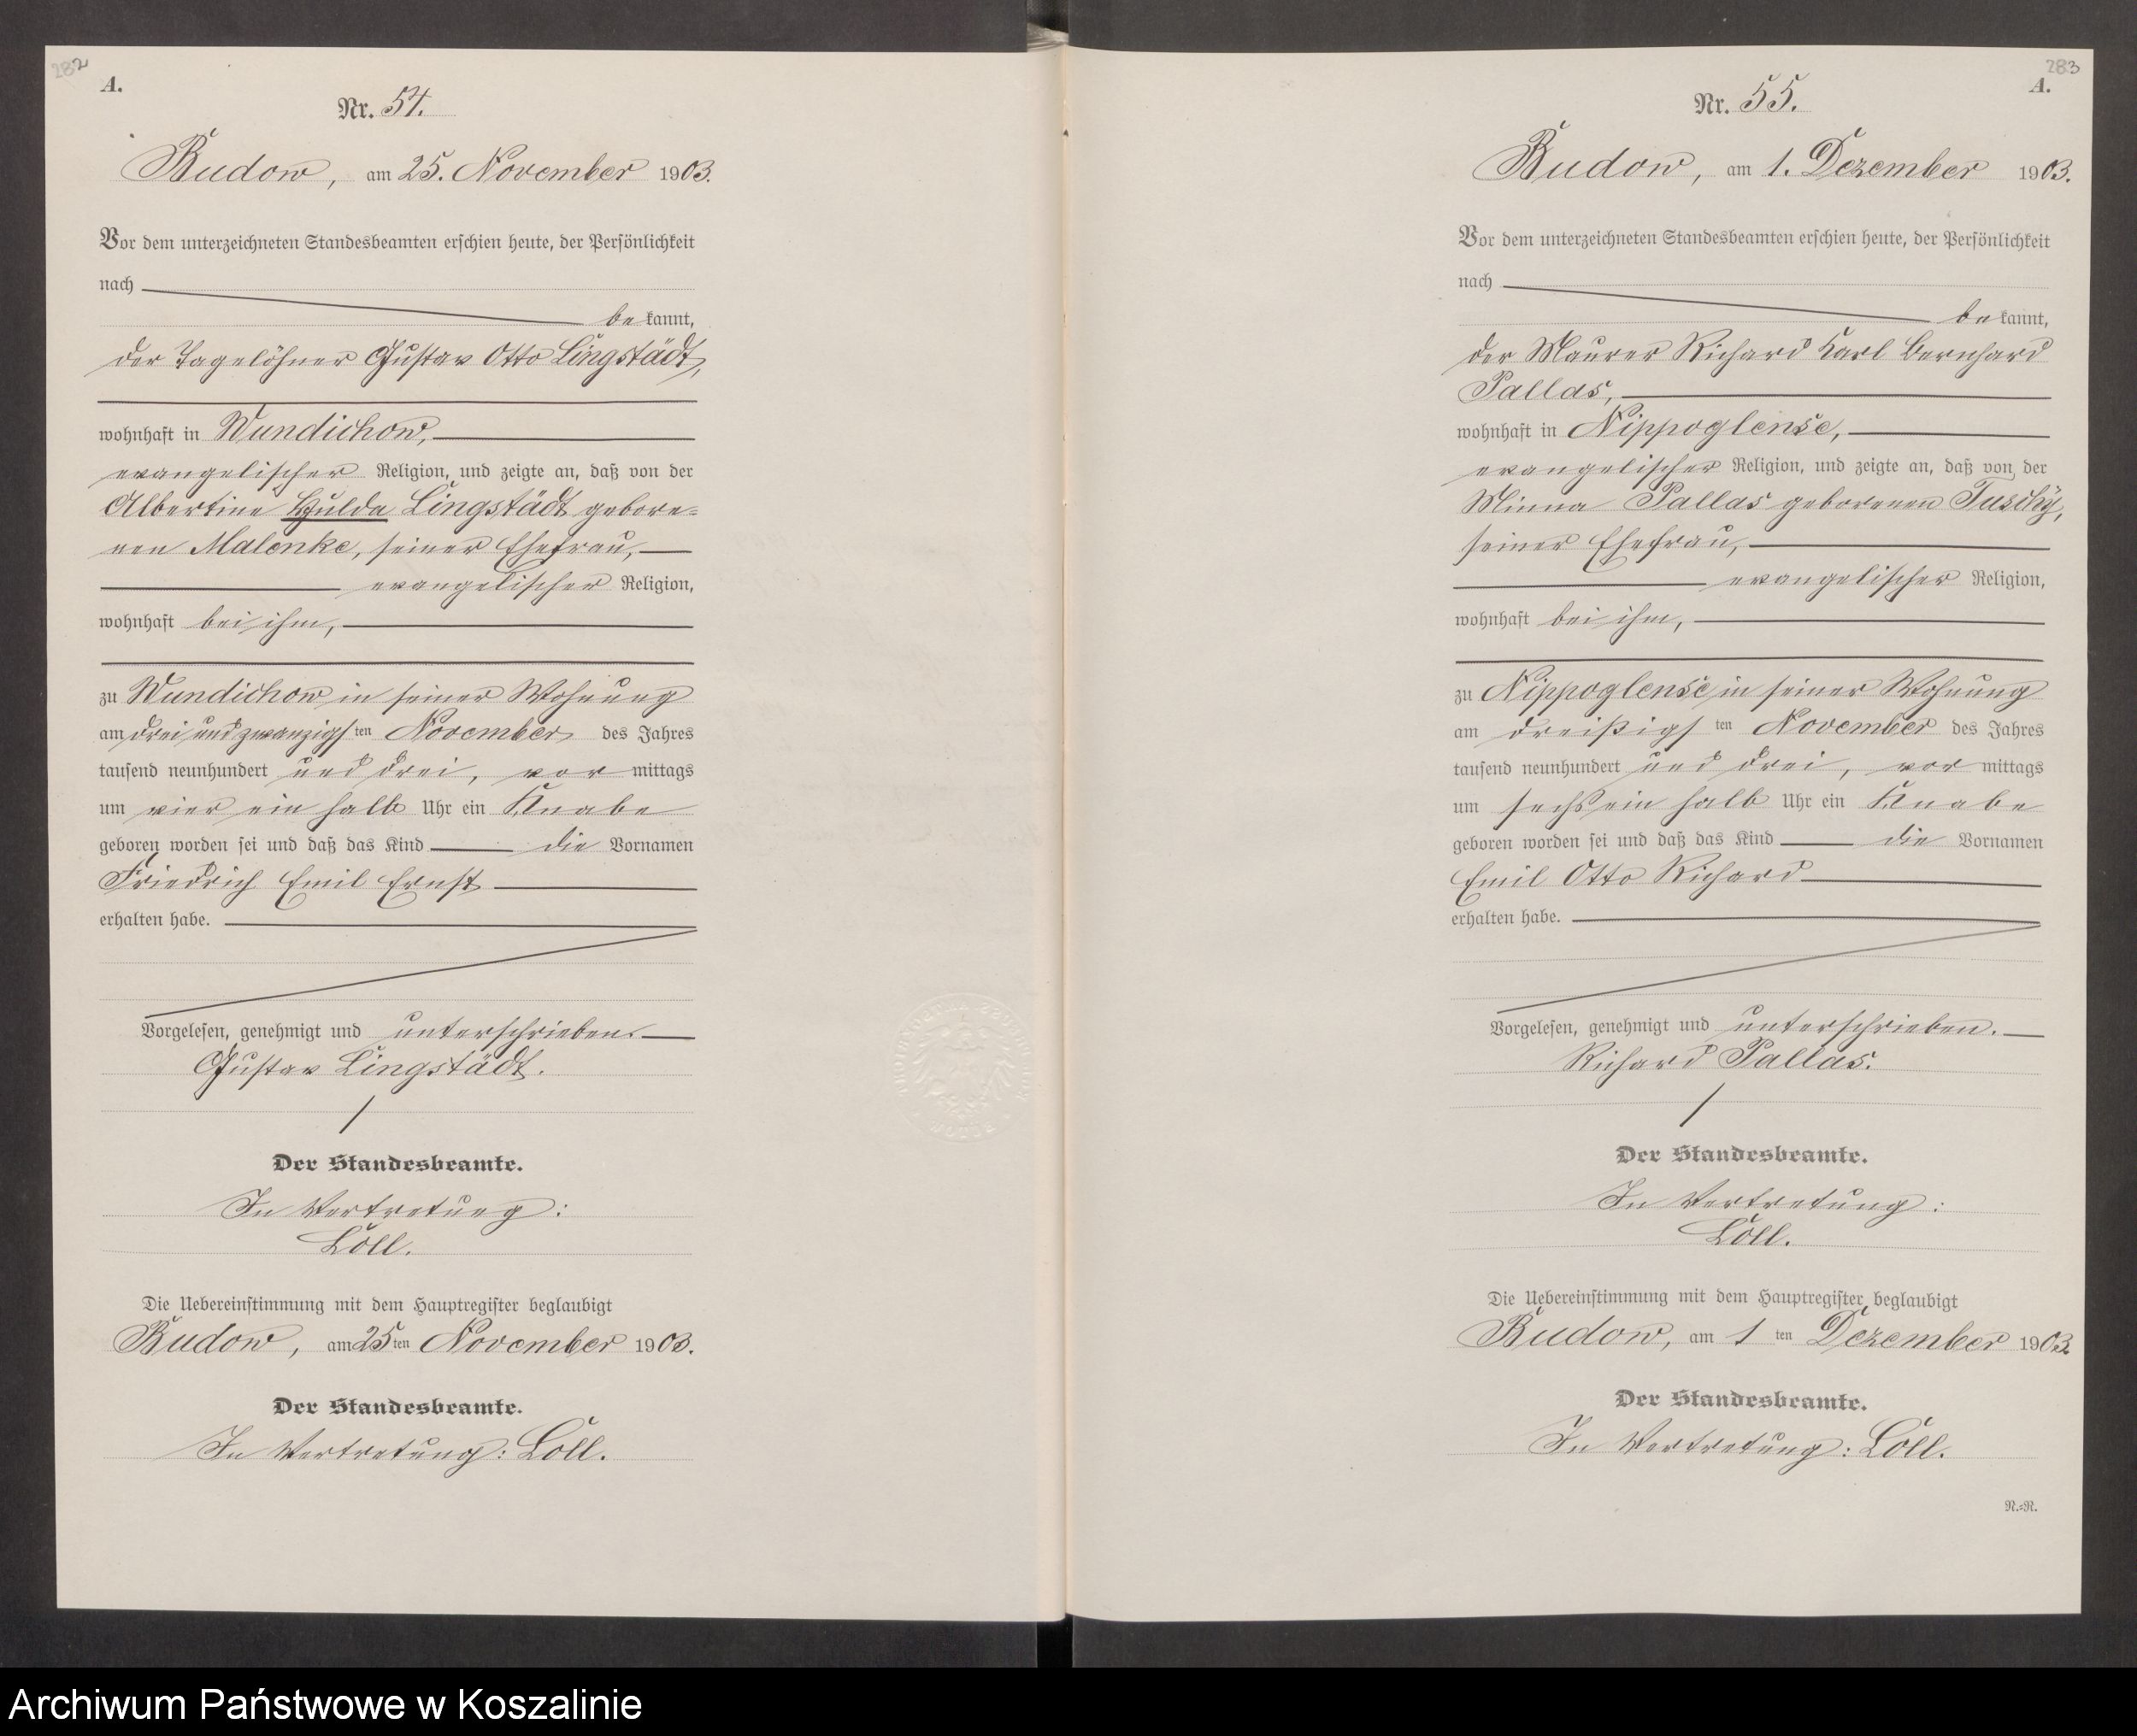 282
A.
Nr. 54.
Budow, am 25. November 1903.
Vor dem unterzeichneten Standesbeamten erschien heute, der Persönlichkeit
nach
bekannt,
der Tagelöhner Gustav Otto Lingstädt,
wohnhaft in Wundichow,
evangelischer Religion, und zeigte an, daß von der
Albertine Hulda Lingstädt gebore-
nen Malonke, seiner Ehefrau,
evangelischer Religion,
wohnhaft bei ihm,
zu Wundichow in seiner Wohnung
am drei und zwanzigsten November des Jahres
tausend neunhundert und drei, vormittags
um vier ein halb Uhr ein Knabe
geboren worden sei und daß das Kind die Vornamen
Friedrich Emil Ernst
erhalten habe.
Vorgelesen, genehmigt und unterschrieben.
Gustav Lingstädt.
Der Standesbeamte.
In Vertretung:
Löll.
Die Uebereinstimmung mit dem Hauptregister beglaubigt
Budow, am 25ten November 1903.
Der Standesbeamte.
In Vertretung: Löll.
283
A.
Nr. 55.
Budow, am 1. Dezember 1903.
Vor dem unterzeichneten Standesbeamten erschien heute, der Persönlichkeit
nach
bekannt,
der Maurer Richard Karl Bernhard
Pallas,
wohnhaft in Nippoglense,
evangelischer Religion, und zeigte an, daß von der
Minna Pallas geborenen Tuschy,
seiner Ehefrau,
evangelischer Religion,
wohnhaft bei ihm,
zu Nippoglense in seiner Wohnung
am dreißigsten November des Jahres
tausend neunhundert und drei, vormittags
um sechs ein halb Uhr ein Knabe
geboren worden sei und daß das Kind die Vornamen
Emil Otto Richard
erhalten habe.
Vorgelesen, genehmigt und unterschrieben.
Richard Pallas.
Der Standesbeamte.
In Vertretung:
Löll.
Die Uebereinstimmung mit dem Hauptregister beglaubigt
Budow, am 1ten Dezember 1903.
Der Standesbeamte.
In Vertretung: Löll.
N.=N.
Archiwum Państwowe w Koszalinie